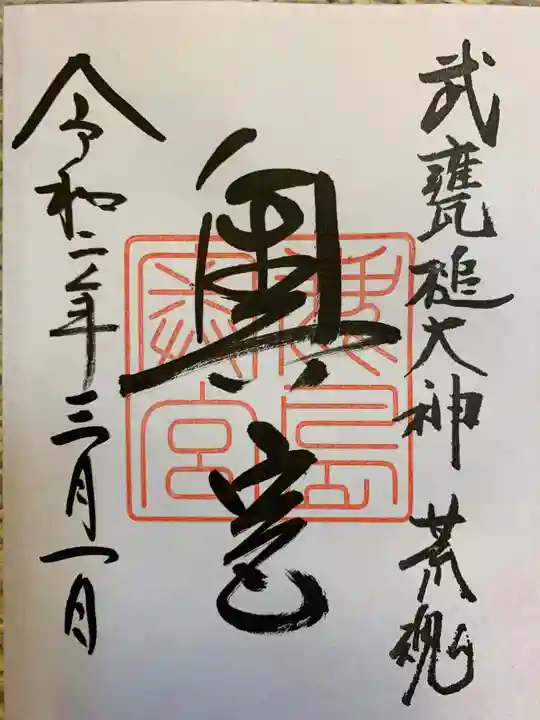 武甕槌大神 荒魂
奥宮
鹿島
神宮
令和二年三月一日